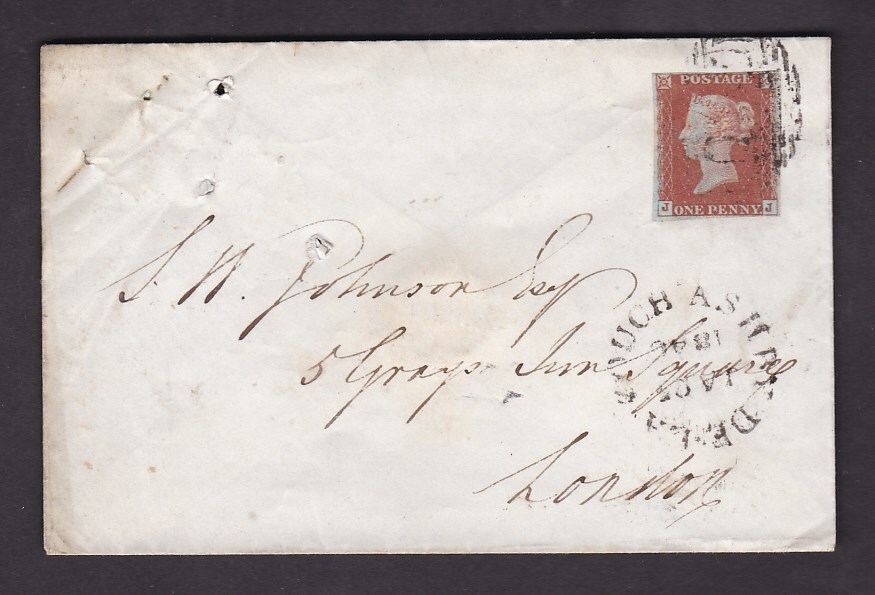 POSTAGE
J ONE PENNY J
S. W. Johnson Esq
5 Grays Inn Square
London
ASHBY DE-LA ZOUCH